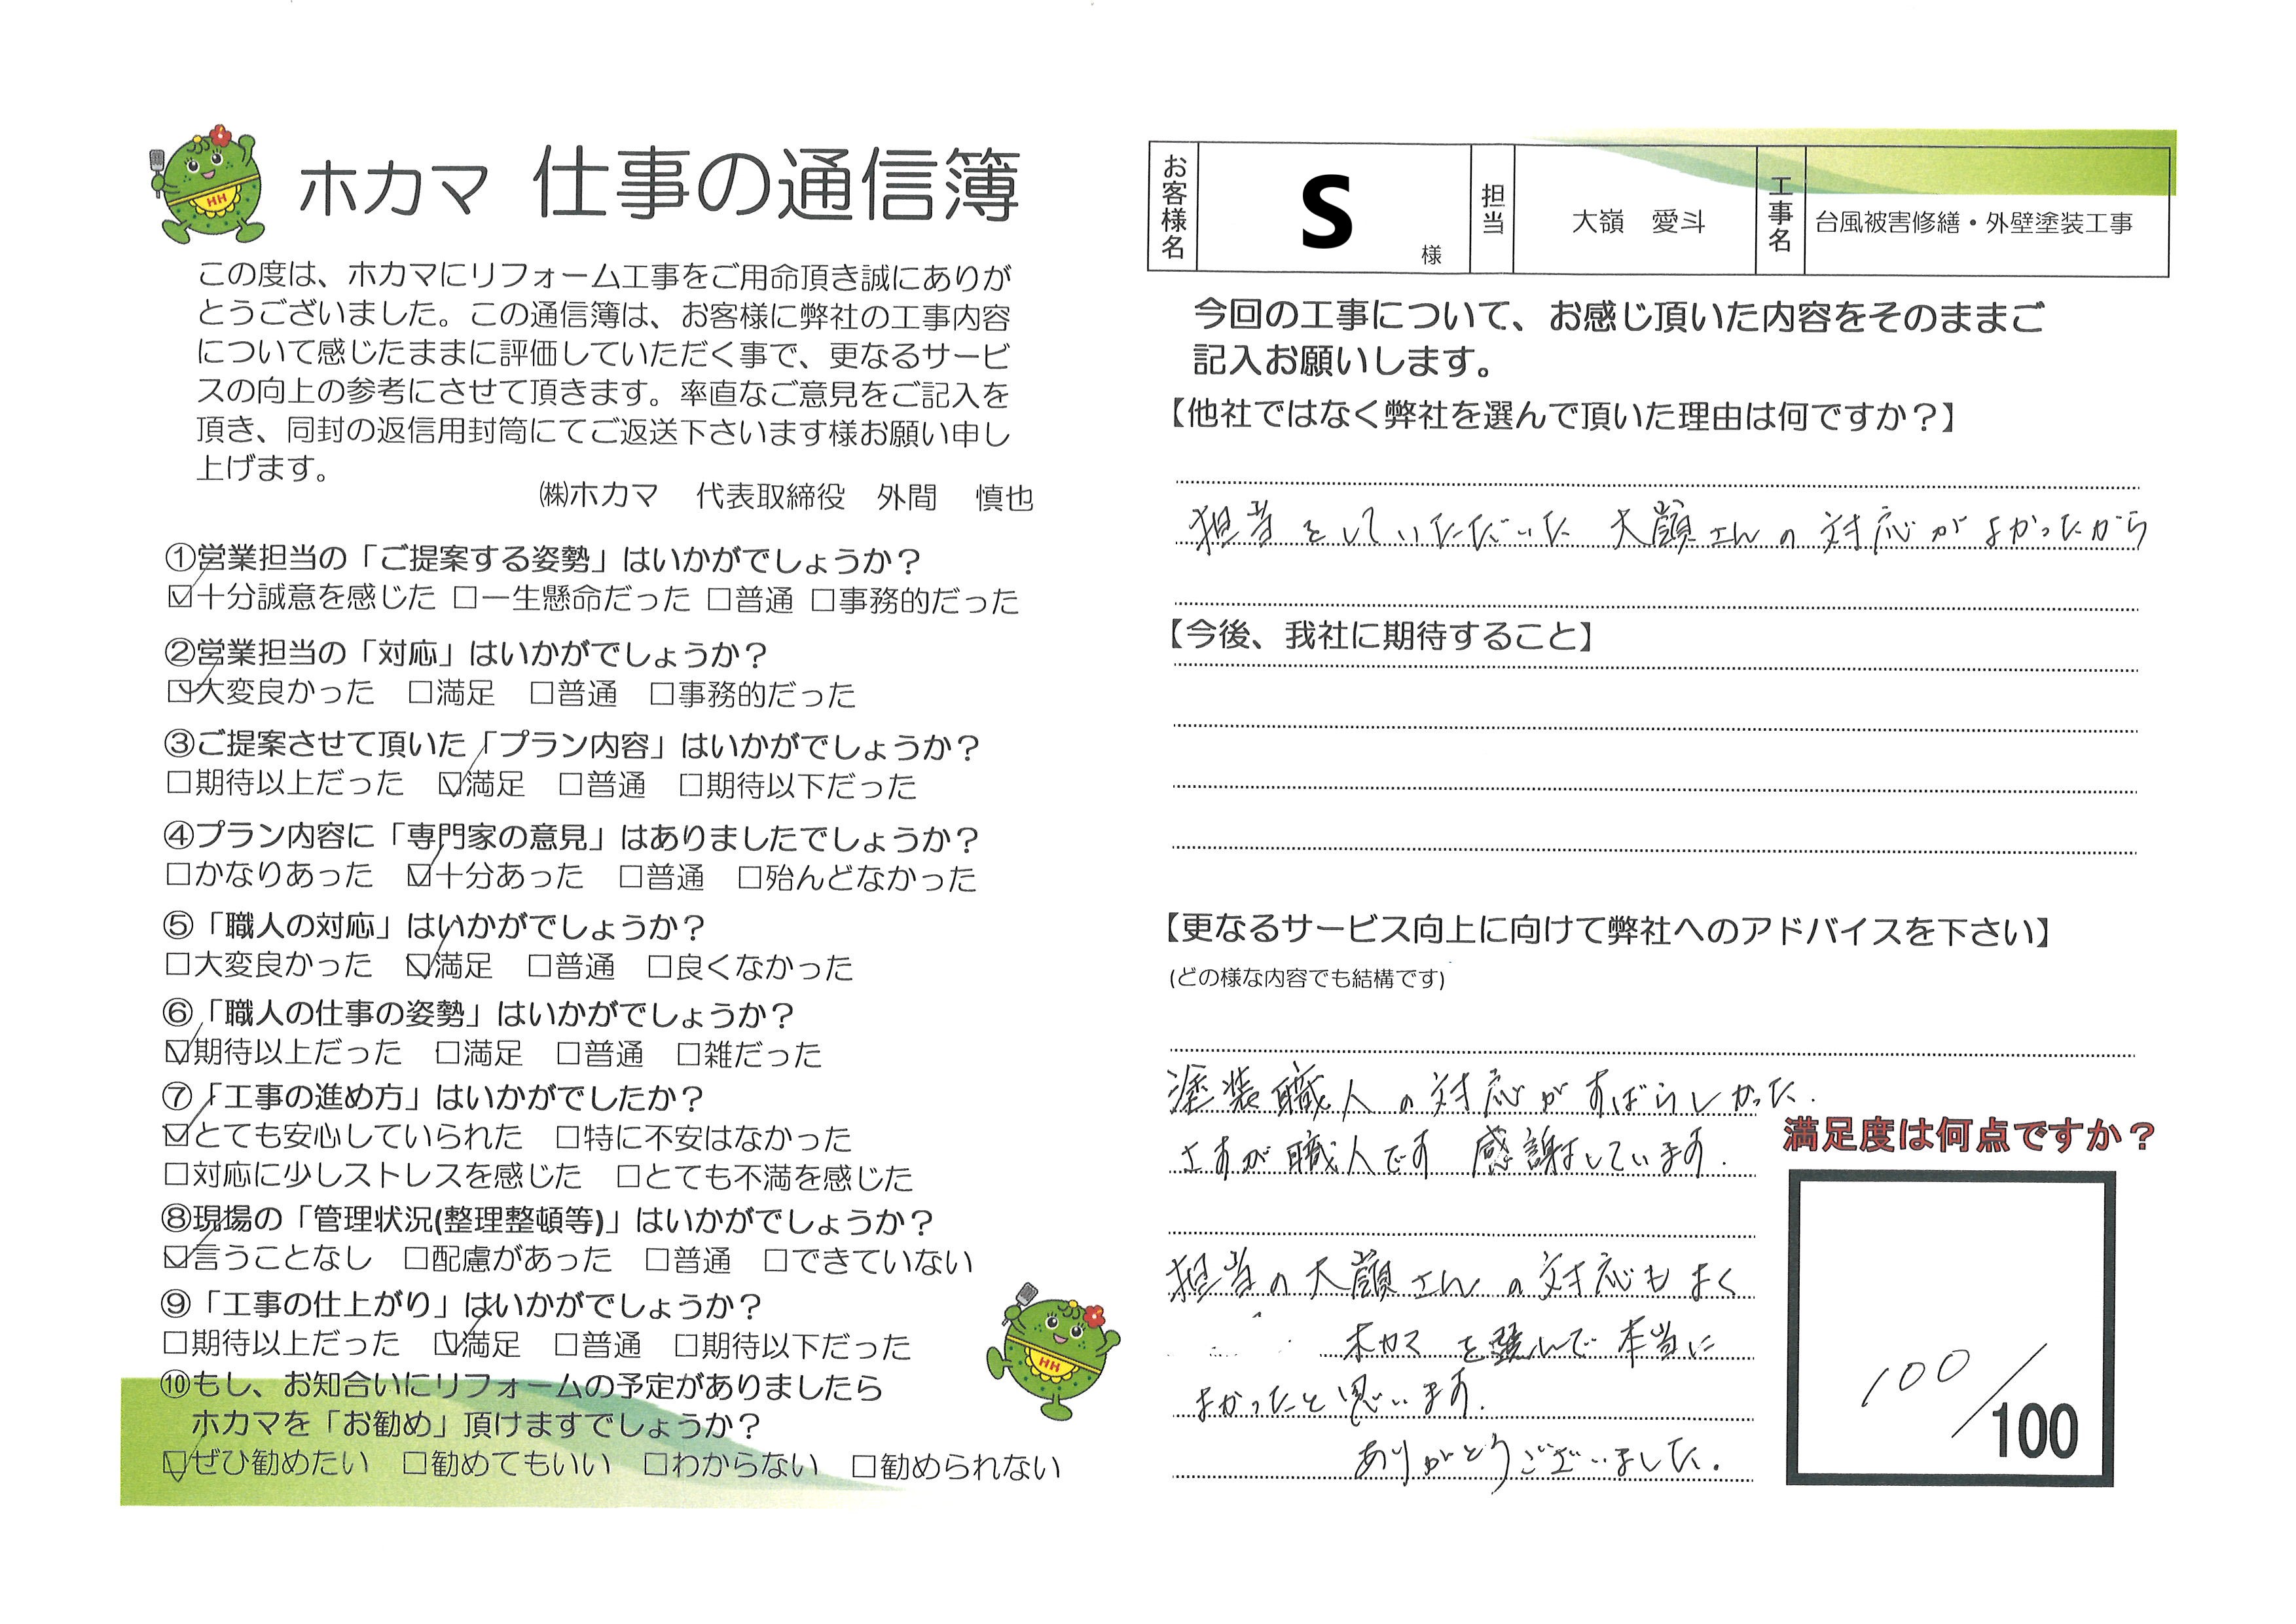 ホカマ 仕事の通信簿
この度は、ホカマにリフォーム工事をご用命頂き誠にありが
とうございました。この通信簿は、お客様に弊社の工事内容
について感じたままに評価していただく事で、更なるサービ
スの向上の参考にさせて頂きます。率直なご意見をご記入を
頂き、同封の返信用封筒にてご返送下さいます様お願い申し
上げます。
㈱ホカマ 代表取締役 外間 慎也
①営業担当の「ご提案する姿勢」はいかがでしょうか？
☑十分誠意を感じた □一生懸命だった □普通 □事務的だった
②営業担当の「対応」はいかがでしょうか？
☑大変良かった □満足 □普通 □事務的だった
③ご提案させて頂いた「プラン内容」はいかがでしょうか？
□期待以上だった ☑満足 □普通 □期待以下だった
④プラン内容に「専門家の意見」はありましたでしょうか？
□かなりあった ☑十分あった □普通 □殆んどなかった
⑤「職人の対応」はいかがでしょうか？
□大変良かった ☑満足 □普通 □良くなかった
⑥「職人の仕事の姿勢」はいかがでしょうか？
☑期待以上だった □満足 □普通 □雑だった
⑦「工事の進め方」はいかがでしたか？
☑とても安心していられた □特に不安はなかった
□対応に少しストレスを感じた □とても不満を感じた
⑧現場の「管理状況(整理整頓等)」はいかがでしょうか？
☑言うことなし □配慮があった □普通 □できていない
⑨「工事の仕上がり」はいかがでしょうか？
□期待以上だった ☑満足 □普通 □期待以下だった
⑩もし、お知合いにリフォームの予定がありましたら
ホカマを「お勧め」頂けますでしょうか？
☑ぜひ勧めたい □勧めてもいい □わからない □勧められない
HH
HH
お客様名 S 様 担当 大嶺 愛斗 工事名 台風被害修繕・外壁塗装工事
今回の工事について、お感じ頂いた内容をそのままご
記入お願いします。
【他社ではなく弊社を選んで頂いた理由は何ですか？】
担当をしていただいた 大嶺さんの対応がよかったから
【今後、我社に期待すること】
【更なるサービス向上に向けて弊社へのアドバイスを下さい】
(どの様な内容でも結構です)
塗装職人の対応がすばらしかった.
さすが職人です 感謝しています.
担当の大嶺さんの対応もよく
ホカマを選んで本当に
よかったと思います.
ありがとうございました.
満足度は何点ですか？
100／100